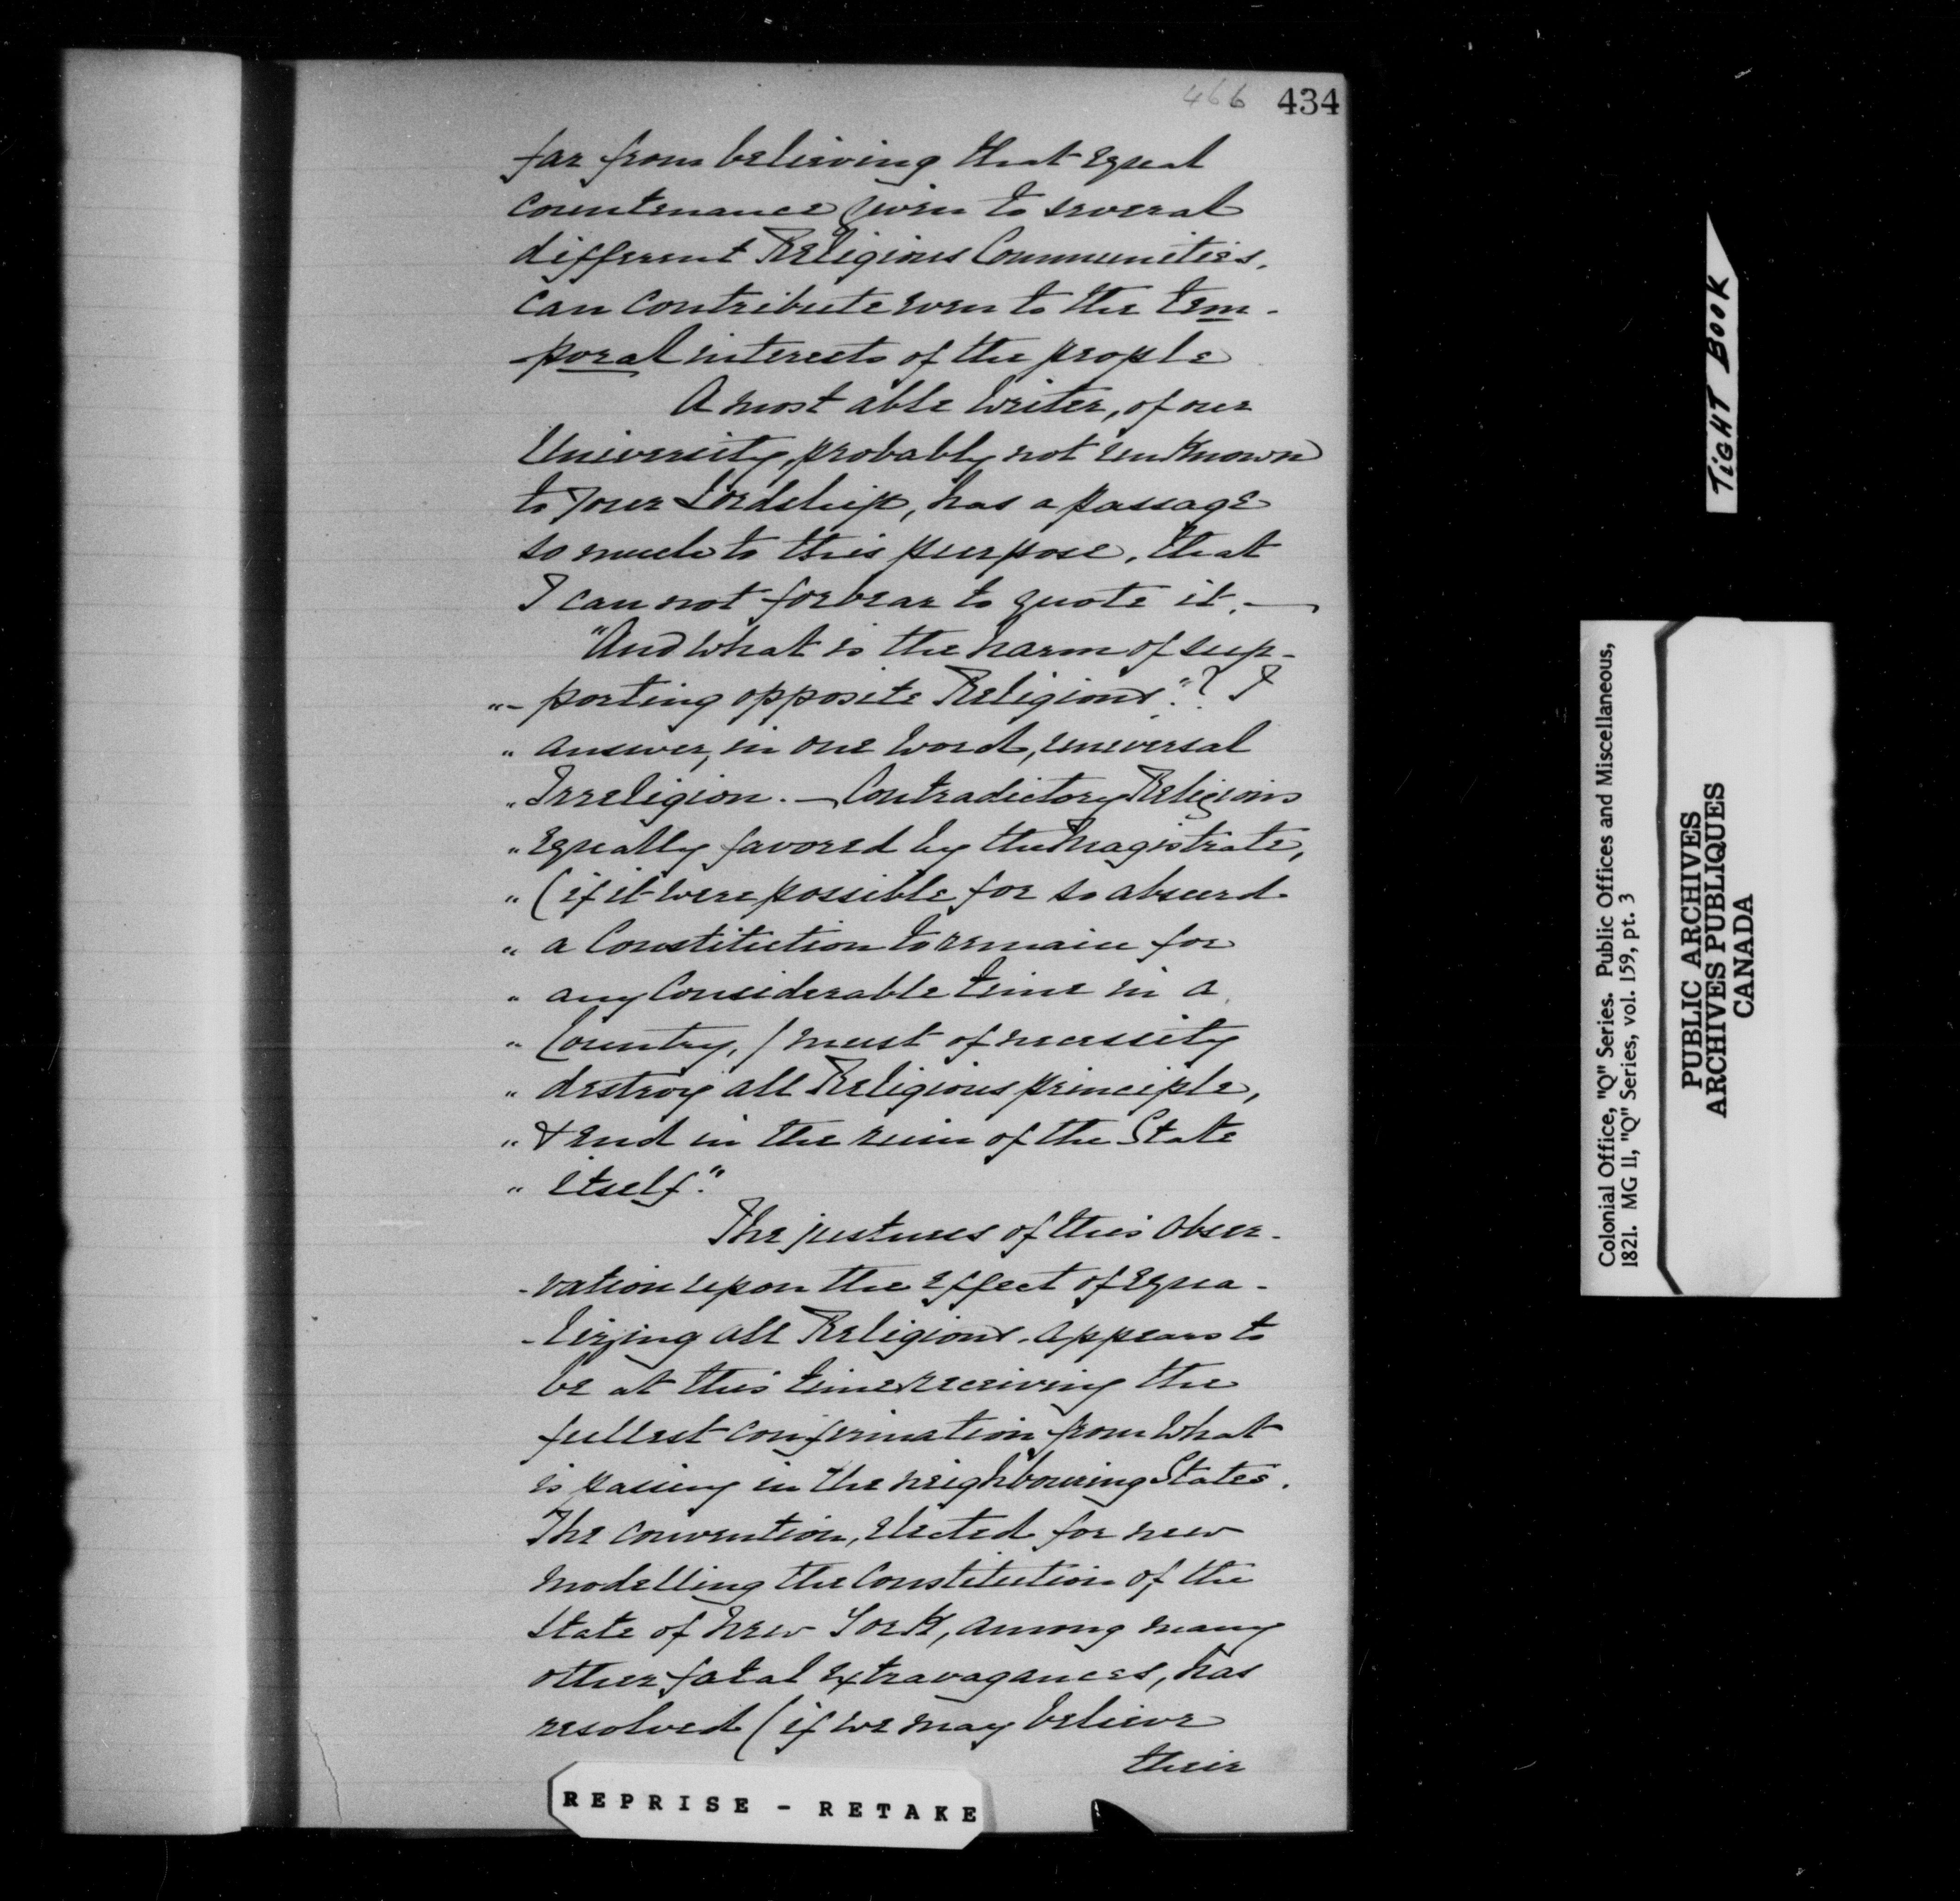 466 434
far from believing that equal
countenance given to several
different Religious Communities,
can contribute even to the tem-
poral interests of the people
A most able writer, of our
University, probably not unknown
to your Lordship, has a passage
so much to this purpose, that
I can not forbear to quote it. —
"And what is the harm of sup-
"- porting opposite Religions"? I
" answer, in one word, universal
" Irreligion. — Contradictory Religions
" equally favored by the Magistrate,
" (if it were possible for so absurd
" a Constitution to remain for
" any Considerable time in a
" Country,) must of necessity
" destroy all Religious principle,
" & end in the ruin of the State
" itself."
The justness of this obser-
-vation upon the effect of equa-
-lizing all Religions, appears to
be at this time receiving the
fullest confirmation from what
is passing in the neighbouring States.
The convention, elected for new
modelling the Constitution of the
State of New York, among many
other fatal extravagances, has
resolved (if we may believe
their
REPRISE - RETAKE
TIGHT BOOK
Colonial Office, "Q" Series. Public Offices and Miscellaneous,
1821. MG 11, "Q" Series, vol. 159, pt. 3
PUBLIC ARCHIVES
ARCHIVES PUBLIQUES
CANADA